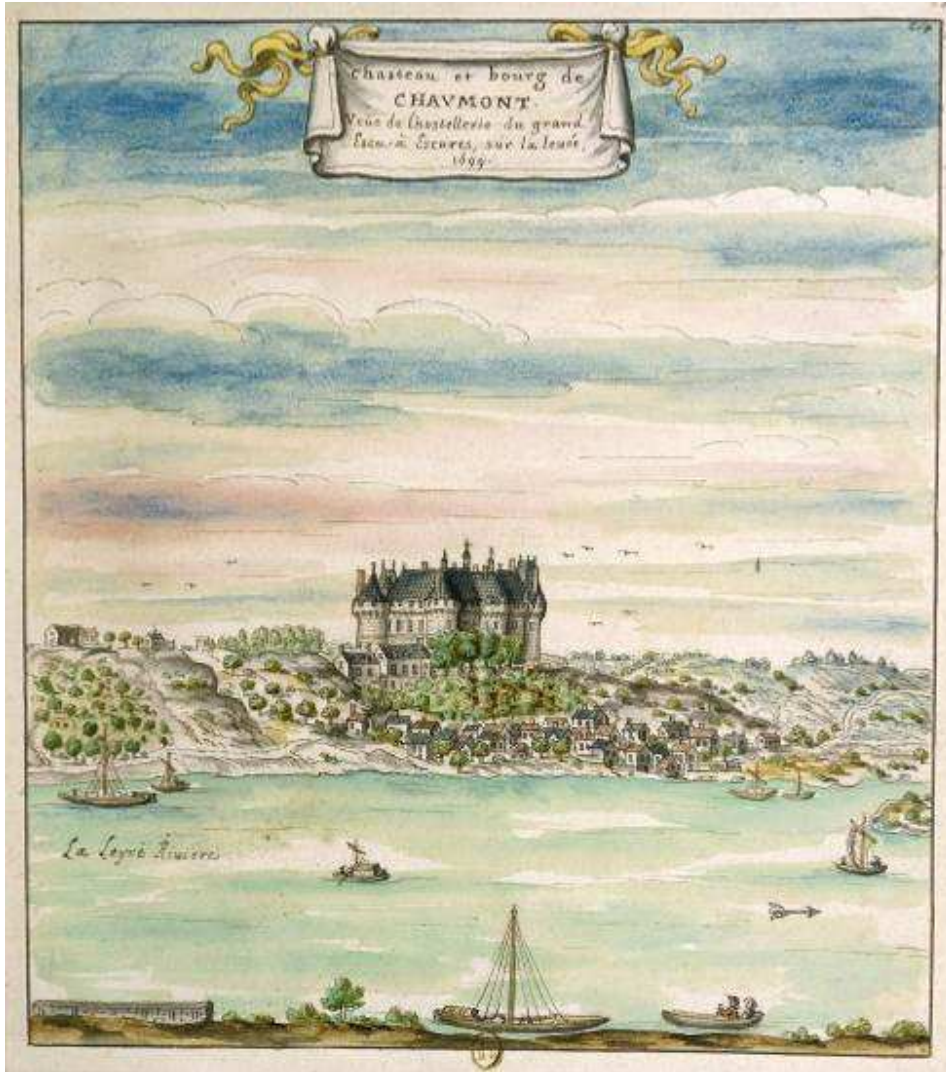 Chasteau et bourg de
CHAVMONT.
Veüe de l'hostellerie du grand
Escu a Escures, sur la leuée,
1699.
La Loyre Riuiere